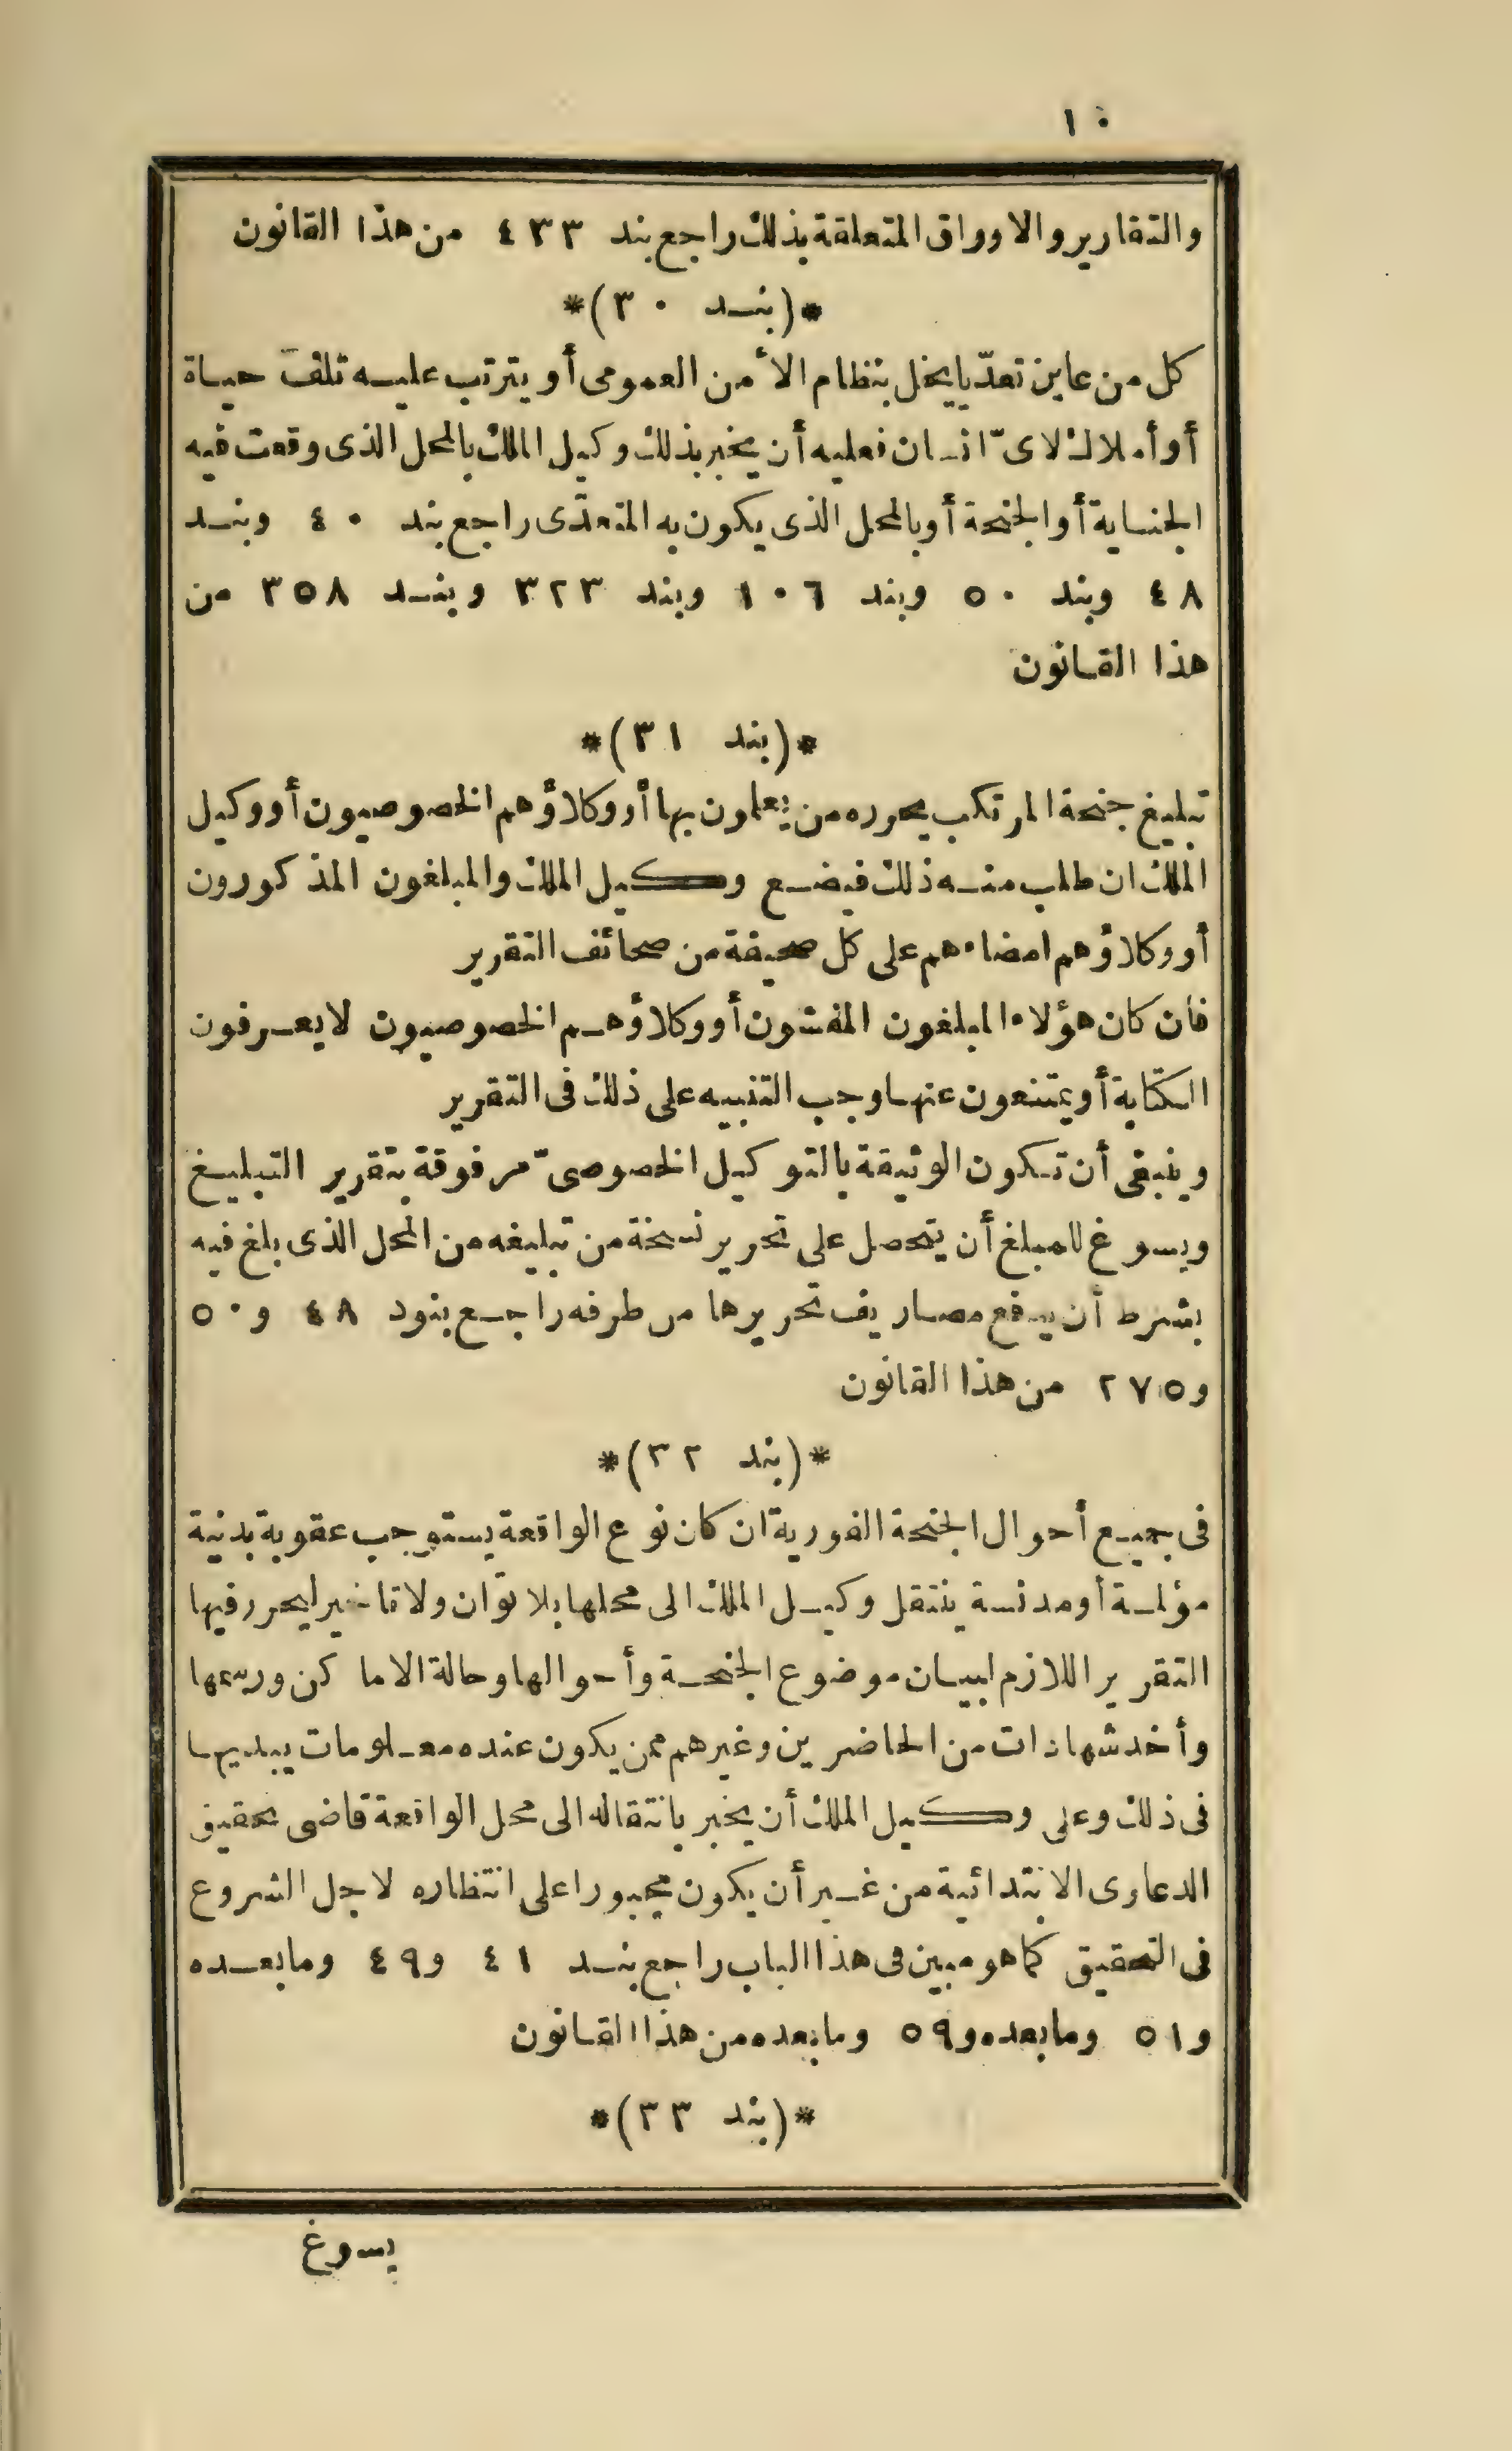 ١٠
والتقارير والاوراق المتعلقة بذلك راجع بند ٤٣٣ من هذا القانون
*(بند ٣٠)*
كل من عاين تعدّيا يخل بنظام الأمن العمومى أو يترتب عليه تلف حياة
أو أملاك لاىّ انسان فعليه أن يخبر بذلك وكيل الملك بالمحل الذى وقعت فيه
الجناية أو الجنحة أو بالمحل الذى يكون به المتعدّى راجع بند ٤٠ وبند
٤٨ وبند ٥٠ وبند ١٠٦ وبند ٣٢٣ وبند ٣٥٨ من
هذا القانون
*(بند ٣١)*
تبليغ جنحة المرتكب يحرره من يعلمون بها أو وكلاؤهم الخصوصيون أو وكيل
الملك ان طلب منه ذلك فيضع وكيل الملك والمبلغون المذكورون
أو وكلاؤهم امضاءهم على كل صحيفة من صحائف التقرير
فان كان هؤلاء المبلغون المفتشون أو وكلاؤهم الخصوصيون لا يعرفون
الكتابة أو يمتنعون عنها وجب التنبيه على ذلك فى التقرير
وينبغى أن تكون الوثيقة بالتوكيل الخصوصىّ مرفوقة بتقرير التبليغ
ويسوغ للمبلغ أن يتحصل على تحرير نسخة من تبليغه من المحل الذى بلغ فيه
بشرط أن يدفع مصاريف تحريرها من طرفه راجع بنود ٤٨ و٥٠
و٢٧٥ من هذا القانون
*(بند ٣٢)*
فى جميع أحوال الجنحة الفورية ان كان نوع الواقعة يستوجب عقوبة بدنية
مؤلمة أو مدنسة ينتقل وكيل الملك الى محلها بلا توان ولا تاخير ليحرر فيها
التقرير اللازم لبيان موضوع الجنحة وأحوالها وحالة الاماكن ورسمها
وأخذ شهادات من الحاضرين وغيرهم ممن يكون عنده معلومات يبديها
فى ذلك وعلى وكيل الملك أن يخبر بانتقاله الى محل الواقعة قاضى تحقيق
الدعاوى الابتدائية من غير أن يكون مجبورا على انتظاره لاجل الشروع
فى التحقيق كما هو مبين فى هذا الباب راجع بند ٤١ و٤٩ وما بعده
و٥١ وما بعده و٥٩ وما بعده من هذا القانون
*(بند ٣٣)*
يسوغ